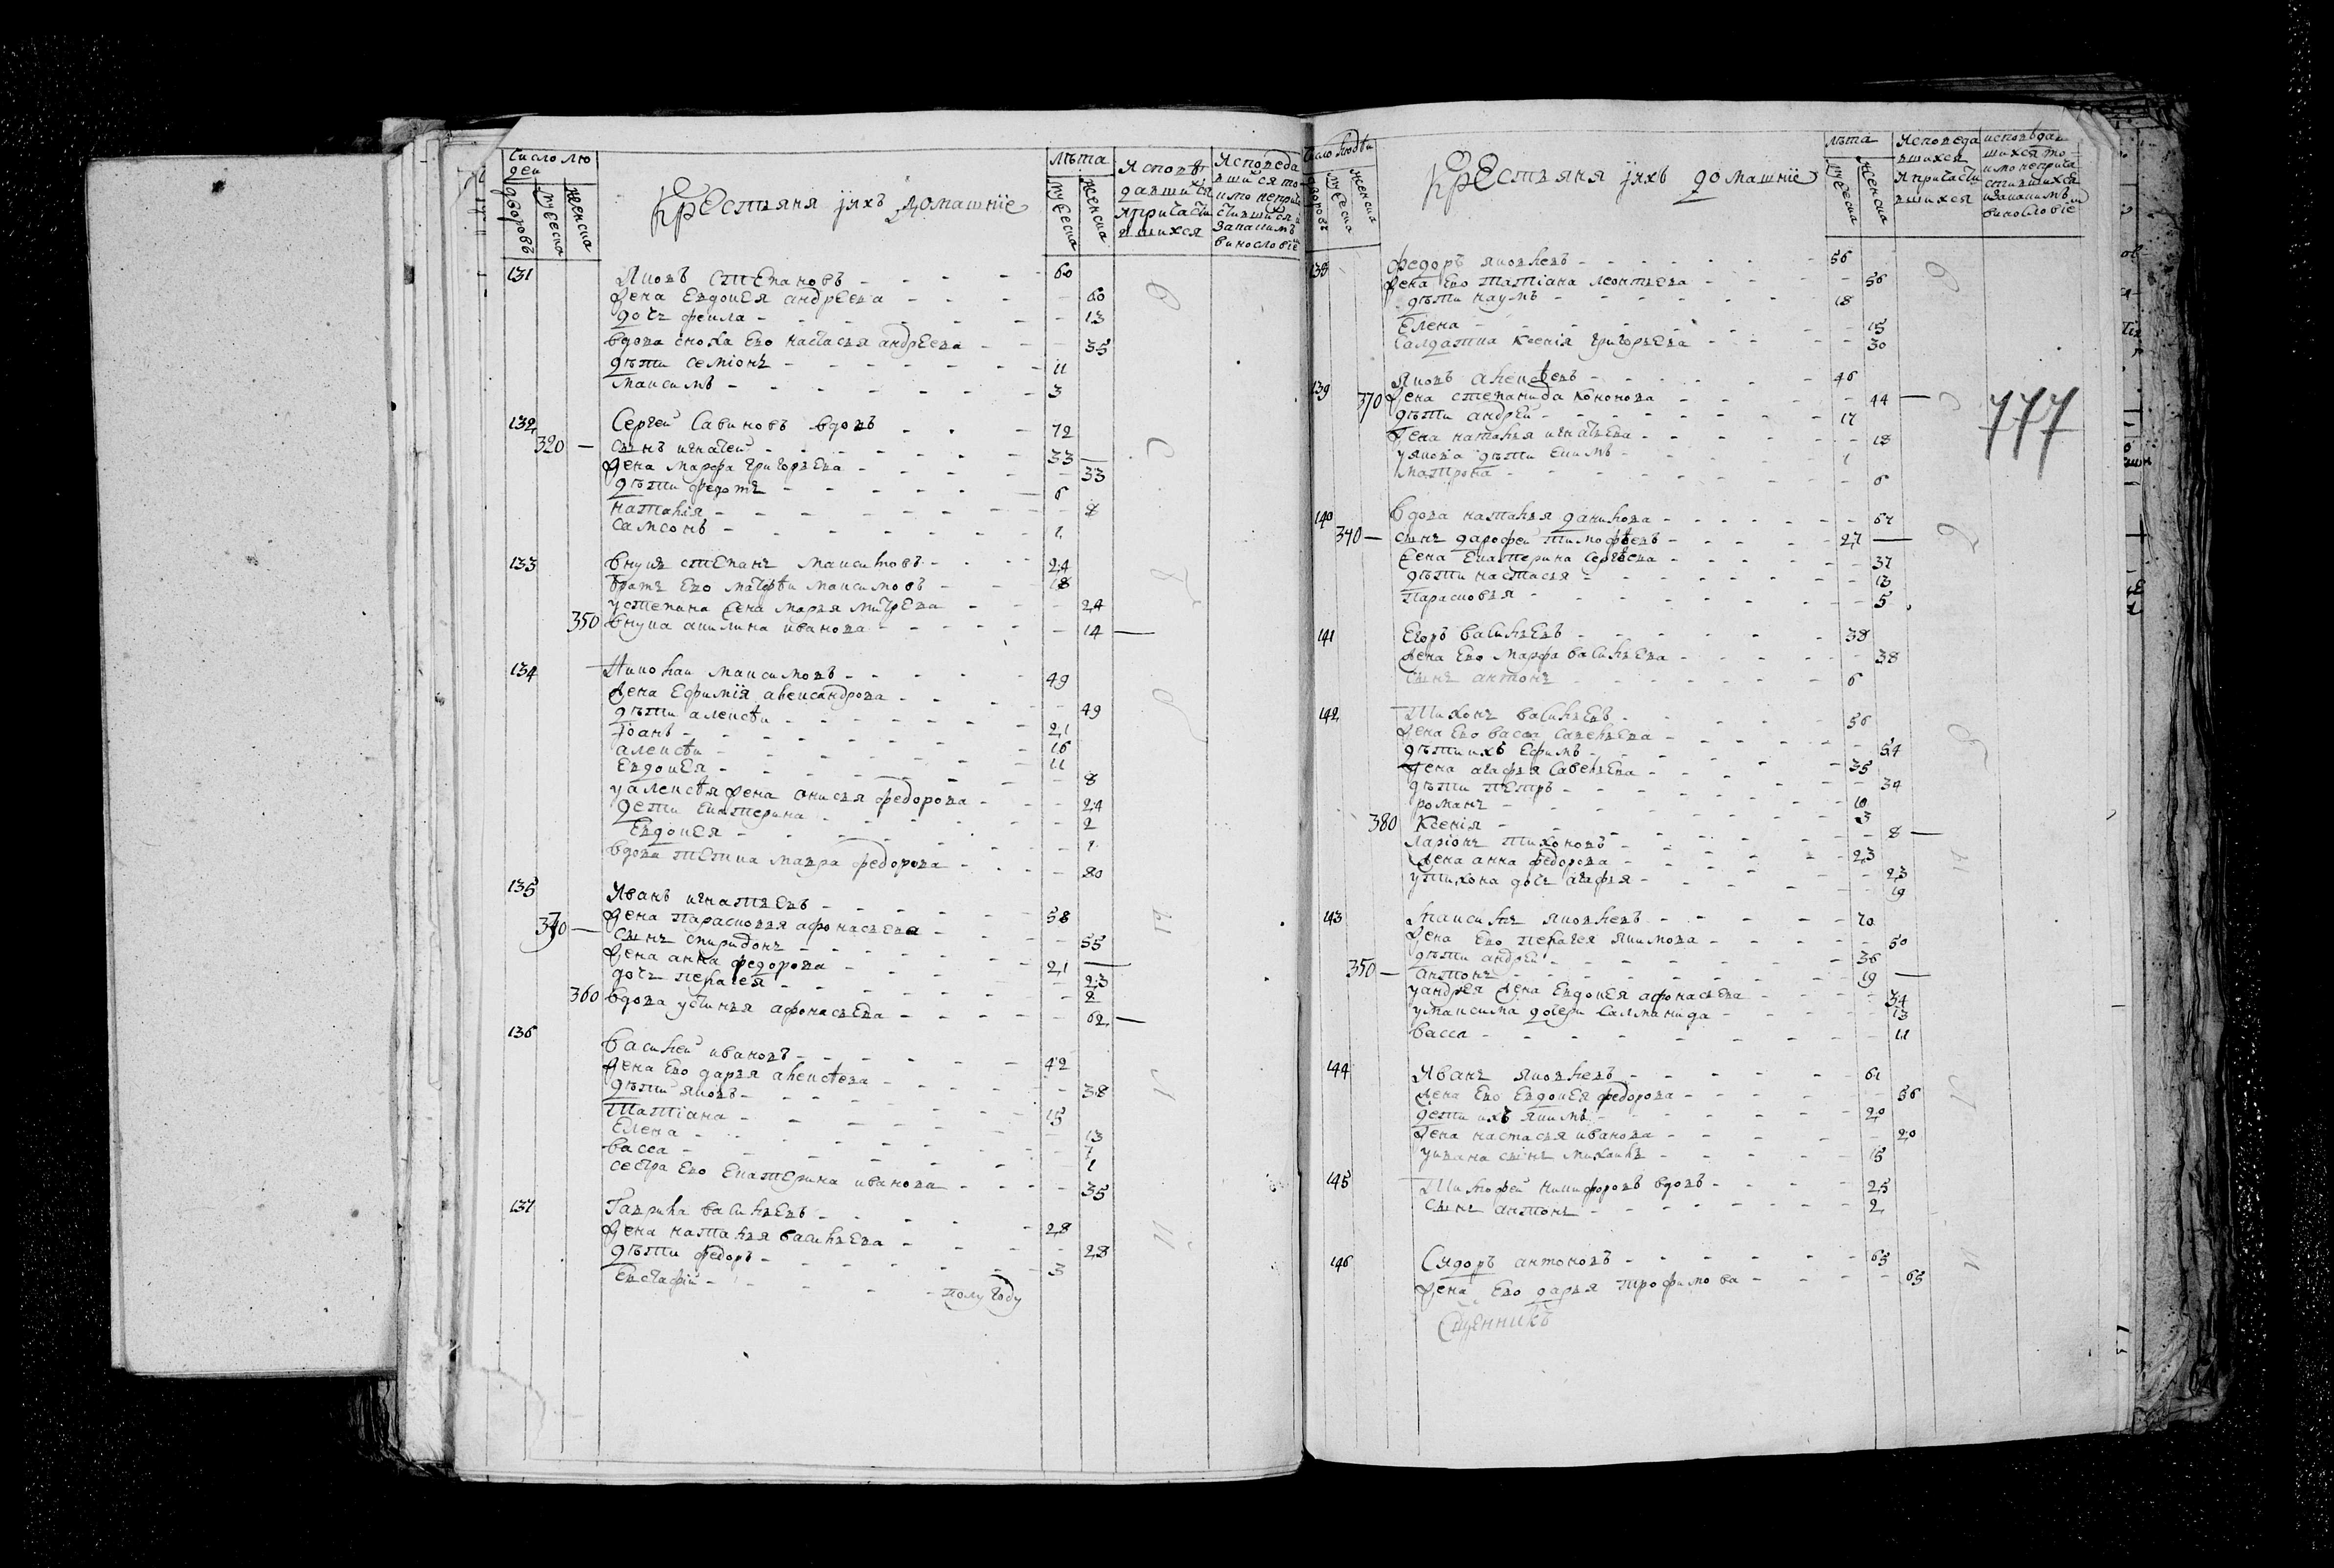 Число лю
дей
дворовъ
мужеска
женска
Крестьяня ïихъ домашнïе
лѣта
мужеска
женска
Исповѣ
давшихся
ипричасти
вшихся
Исповеда
вшихся то
кмо неприча
стившихся
Закакимъ
винословіе
131 Яковъ степановъ - - - - 60
жена Евдокея андреева - - - - 60
дочь фекла - - - - - 13
вдова сноха Ево настасья андреева - - - 35
дѣти семіонъ - - - - - 11
максимъ - - - - - 3
132 Сергей Савиновъ вдовъ - - - 72
320 — сынъ игнатей - - - - 33 —
жена марфа григорьева - - - - 33
дѣти федотъ - - - - - 6
наталія - - - - - 8
самсонъ - - - - - 1
133 внукъ степанъ максимовъ - - - 24
братъ Ево матфѣи максимовъ - - 18
устепана жена марья митрева - - - 24
350 внука акилина иванова - - - - 14 —
134 Николаи максимовъ - - - - 49
жена Ефимия александрова - - - 49
дѣти алексѣи - - - - - 21
Іоанъ - - - - - 16
алексѣи - - - - - 11
Евдокея - - - - - 8
уалексѣя жена анисья федорова - - - 24
дети Екатерина - - - - 2
Евдокея - - - - - 1
вдова тетка мавра федорова - - - 80
135 Иванъ игнатьевъ - - - - 58
жена парасковья афонасьева - - - 55
330 — сынъ спиридонъ - - - - 21 —
жена анна федорова - - - - 23
дочь пелагея - - - - - 2
360 вдова устинья афонасьева - - - - 62 —
136 василей ивановъ - - - - 42
жена Ево дарья алексѣева - - - - 38
дѣти яковъ - - - - - 15
татіана - - - - - 13
Елена - - - - - 7
васса - - - - - 1
сестра Ево Екатерина иванова - - - 35
137 Гаврила васильевъ - - - - 28
жена наталья васильева - - - - 28
дѣти федоръ - - - - - 3
Евстафій - - - - полугоду
Число людѣи
дворовъ
мужеска
женска
Крестьяня ïихъ домашнïе
лѣта
мужеска
женска
Исповеда
вшихся
ипричасти
вшихся
исповѣдав
шихся то
кмо неприча
стившихся
изакакимъ
винословіе
138 федоръ яковлевъ - - - - 56
жена Ево татіана леонтьева - - - 56
дѣти наумъ - - - - - 18
Елена - - - - - 15
Салдатка Ксенія григорьева - - - 30
139 Яковъ алексѣевъ - - - - 46
370 жена степанида кононова - - - 44 —
дѣти андрей - - - - - 17
жена наталья игнатьева - - - - 18
уякова дѣти Екимъ - - - - 1
матрона - - - - - 6
777
140 вдова наталья данилова - - - - 67
340 — сынъ дарофеи тимофѣевъ - - - - 27 —
жена Екатерина Сергѣева - - - 37
дѣти настасья - - - - - 13
парасковья - - - - - 5
141 Егоръ васильевъ - - - - 38
жена Ево марфа васильева - - - - 38
сынъ антонъ - - - - - 6
142 Тихонъ васильевъ - - - - 56
жена Ево васса савельева - - - - 54
дѣти ихъ Ефимъ - - - - 35
жена агафья савельева - - - - 34
дѣти петръ - - - - - 10
романъ - - - - - 3
380 Ксенія - - - - - 8 —
ларіонъ тихоновъ - - - - 23
жена анна федорова - - - - 23
утихона дочь агафья - - - - 19
143 Максимъ яковлевъ - - - - 70
жена Ево пелагея якимова - - - - 50
дѣти андрей - - - - - 36
350 — антонъ - - - - - 19 —
уандрея жена Евдокея афонасьева - - - 34
умаксима дочери саламанида - - - 13
васса - - - - - 11
144 Иванъ яковлевъ - - - - 61
жена Ево Евдокея федорова - - - 56
дети ихъ якимъ - - - - 20
жена настасья иванова - - - - 20
уивана сынъ михаилъ - - - - 15
145 Тимофей никифоровъ вдовъ - - - - 25
сынъ антонъ - - - - - 2
146 Сидоръ антоновъ - - - - 65
жена Ево дарья трофимова - - - - 65
Сщенникъ